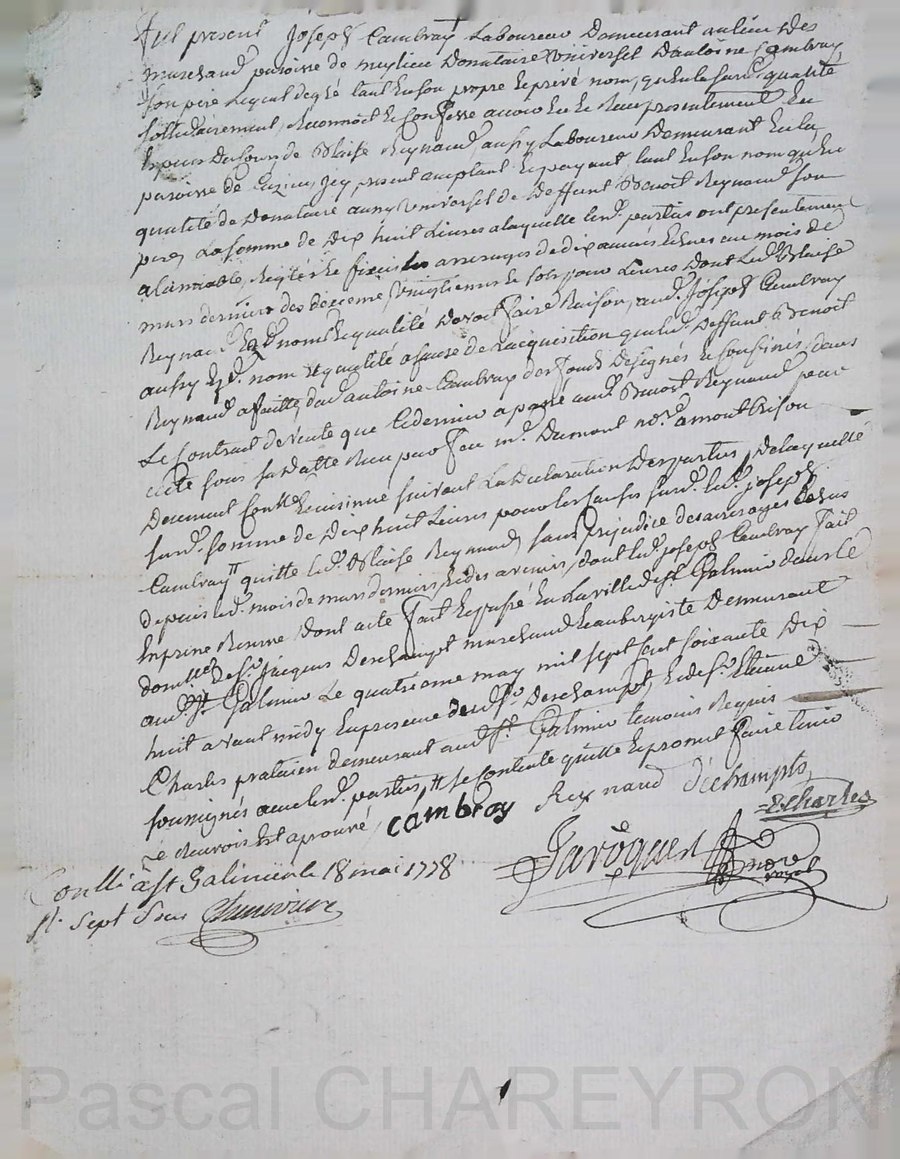 fut present Joseph Cambray Laboureur Demeurant au lieu des
marchand paroisse de meylieu Donataire universel D'antoine Cambray
son pere Lequel de gré tant en son propre Et privé nom, qu'en la susd. qualité
sollidairement, Reconnoit Et Confesse avoir Eu Et Reçu presentement En
Especes Du Cours de Blaise Reynaud aussy Laboureur Demeurant En la
paroisse de Cuzieu, icy present acceptant Et payant tant En son nom qu'en
qualité de Donataire aussy universel de Deffunt Benoit Reynaud son
pere, La somme de Dix huit Livres a laquelle lesd. parties ont presentement
a l'amiable, Reglé Et fixé les arrerages de dix années Echues au mois de
mars dernier des deux vingtiemes Et sols pour Livres Dont Led. Blaise
Reynaud Esd. noms Et qualité Devoit faire Raison, aud. Joseph Cambray
aussy Esd. nom Et qualité a cause de L'acquisition que led. Deffunt Benoit
Reynaud a faitte dud. antoine Cambray des fonds Designés Et Confinés, dans
Le Contrat de vente que Ce dernier a passé aud. Benoit Reynaud pour
acte sous sa Datte Reçu par feu me. Dumont nore. a montbrison
Duement Conttlé Et insinué suivant La Declaration Des parties, De laquelle
susd. somme de Dix huit Livres pour les Causes susd. led. joseph
Cambray quitte led. Blaise Reynaud sans prejudice des arrerages Echus
depuis led. mois de mars dernier, Et des avenir, dont led. joseph Cambray fait
Expresse Reserve, Dont acte fait Et passé En La ville de st. Galmier dans Le
domille de sr. jacques Deschampt marchand Et aubergiste Demeurant
aud. st. Galmier Le quatrieme may mil sept Cent soixante Dix
huit avant midy En presence dud. sr. Deschampt, Et de sr. Etienne
Charles praticien demeurant aud. st. Galmier temoins Requis
soussignés avec lesd. parties, se Contente quitte Et promet faire tenir
Le Renvoi Est aprouvé, cambray Reynaud déchampts
E. Charles
Javogues
nore royal
Conllé à st Galmier le 18 mai 1778
Rt. Sept Sous
Pascal CHAREYRON